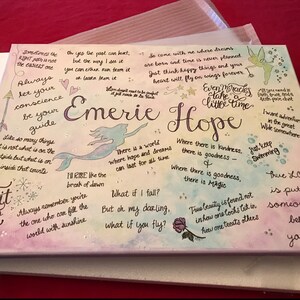 Sometimes the
RIGHT path is not
the easiest one
Oh yes the past can hurt,
but the way I see it
you can either run from it
or learn from it
So come with me where dreams
are born and time is never planned
Just think happy things and your
heart will fly on wings forever
Always
let your
conscience
be your
guide
Even miracles
take a
little time
Emerie Hope
like so many things
it is not what is on the
outside but what is on
inside that counts
There is a world
where hope and dreams
can last for all time
Where there is kindness,
there is goodness...
&
Where there is goodness,
there is Magic
I want adventure
in the great
wide somewhere
Just keep
Swimming
I'll RISE like the
break of dawn
Always remember you're
the one who can fill the
world with sunshine
What if I fall?
But oh my darling,
What if you fly?
True beauty is found not
in how one looks but in
how one treats others
is pu
someo
be
yo